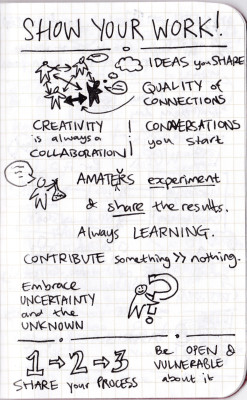 SHOW YOUR WORK!
IDEAS you SHARE
QUALITY of
CONNECTIONS
CREATIVITY
is always a
COLLABORATION
CONVERSATIONS
you start
AMATEURS experiment
& share the results.
Always LEARNING.
CONTRIBUTE something >> nothing.
Embrace
UNCERTAINTY
and the
UNKNOWN
?
1 → 2 → 3
SHARE your PROCESS
Be OPEN &
VULNERABLE
about it